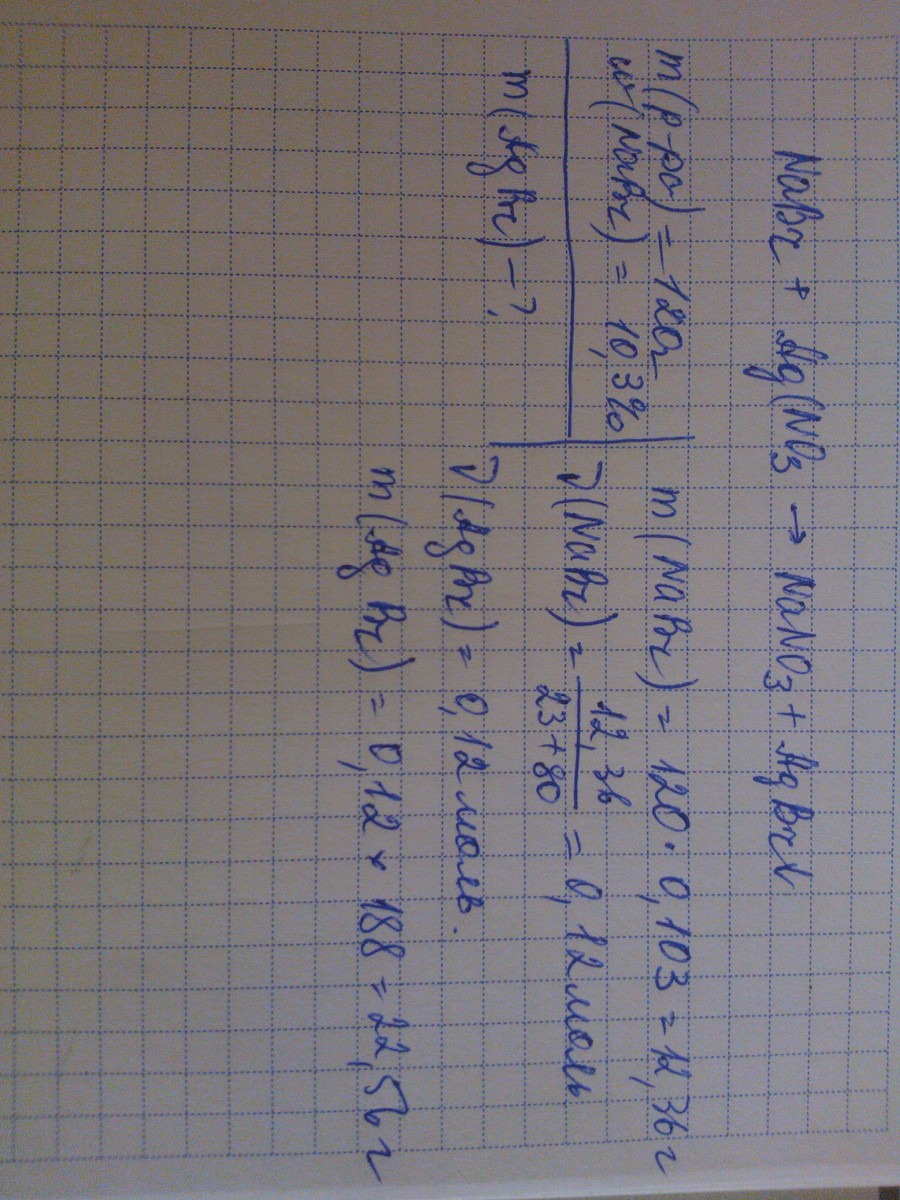 NaBr + Ag(NO3 → NaNO3 + AgBr↓
m(р-ра) = 120г
w(NaBr) = 10,3%
m(AgBr) – ?
m(NaBr) = 120 · 0,103 = 12,36 г
ν(NaBr) = 12,36 / 23+80 = 0,12 моль
ν(AgBr) = 0,12 моль.
m(AgBr) = 0,12 × 188 = 22,56 г